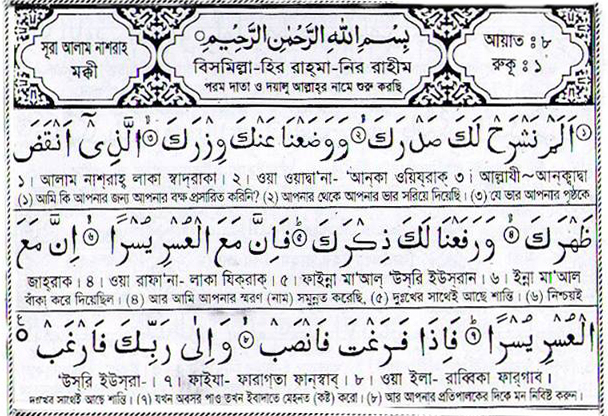 সূরা আলাম নাশরাহ
মক্কী
بِسْمِ اللهِ الرَّحْمٰنِ الرَّحِيْمِ
বিসমিল্লা-হির রাহ্‌মা-নির রাহীম
পরম দাতা ও দয়ালু আল্লাহ্‌র নামে শুরু করছি
আয়াত : ৮
রুকু : ১
① اَلَمْ نَشْرَحْ لَكَ صَدْرَكَ ② وَوَضَعْنَا عَنْكَ وِزْرَكَ ③ الَّذِىْٓ اَنْقَضَ
১। আলাম নাশ্‌রাহ্‌ লাকা স্বাদ্‌রাকা। ২। ওয়া ওয়াদ্বা'না- 'আন্‌কা ওয়িয্‌রাক্‌ ৩। আল্লাযী~আন্‌ক্বাদ্বা
(১) আমি কি আপনার জন্য আপনার বক্ষ প্রসারিত করিনি? (২) আপনার থেকে আপনার ভার সরিয়ে দিয়েছি। (৩) যে ভার আপনার পৃষ্ঠকে
ظَهْرَكَ ④ وَرَفَعْنَا لَكَ ذِكْرَكَ ⑤ فَاِنَّ مَعَ الْعُسْرِ يُسْرًا ⑥ اِنَّ مَعَ
জাহ্‌রাক। ৪। ওয়া রাফা'না- লাকা যিক্‌রাক্‌। ৫। ফাইন্না মা'আল্‌ 'উস্‌রি ইউস্‌রান। ৬। ইন্না মা'আল
বাঁকা করে দিয়েছিল। (৪) আর আমি আপনার স্মরণ (নাম) সমুন্নত করেছি, (৫) দুঃখের সাথেই আছে শান্তি। (৬) নিশ্চয়ই
الْعُسْرِ يُسْرًا ⑦ فَاِذَا فَرَغْتَ فَانْصَبْ ⑧ وَاِلٰى رَبِّكَ فَارْغَبْ
'উস্‌রি ইউস্‌রা- । ৭। ফাইযা- ফারাগ্‌তা ফান্‌স্বাব্‌। ৮। ওয়া ইলা- রাব্বিকা ফার্‌গাব্‌।
দুঃখের সাথেই আছে শান্তি। (৭) যখন অবসর পাও তখন ইবাদাতে মেহনত (কষ্ট) করো। (৮) আর আপনার প্রতিপালকের দিকে মন নিবিষ্ট করুন।